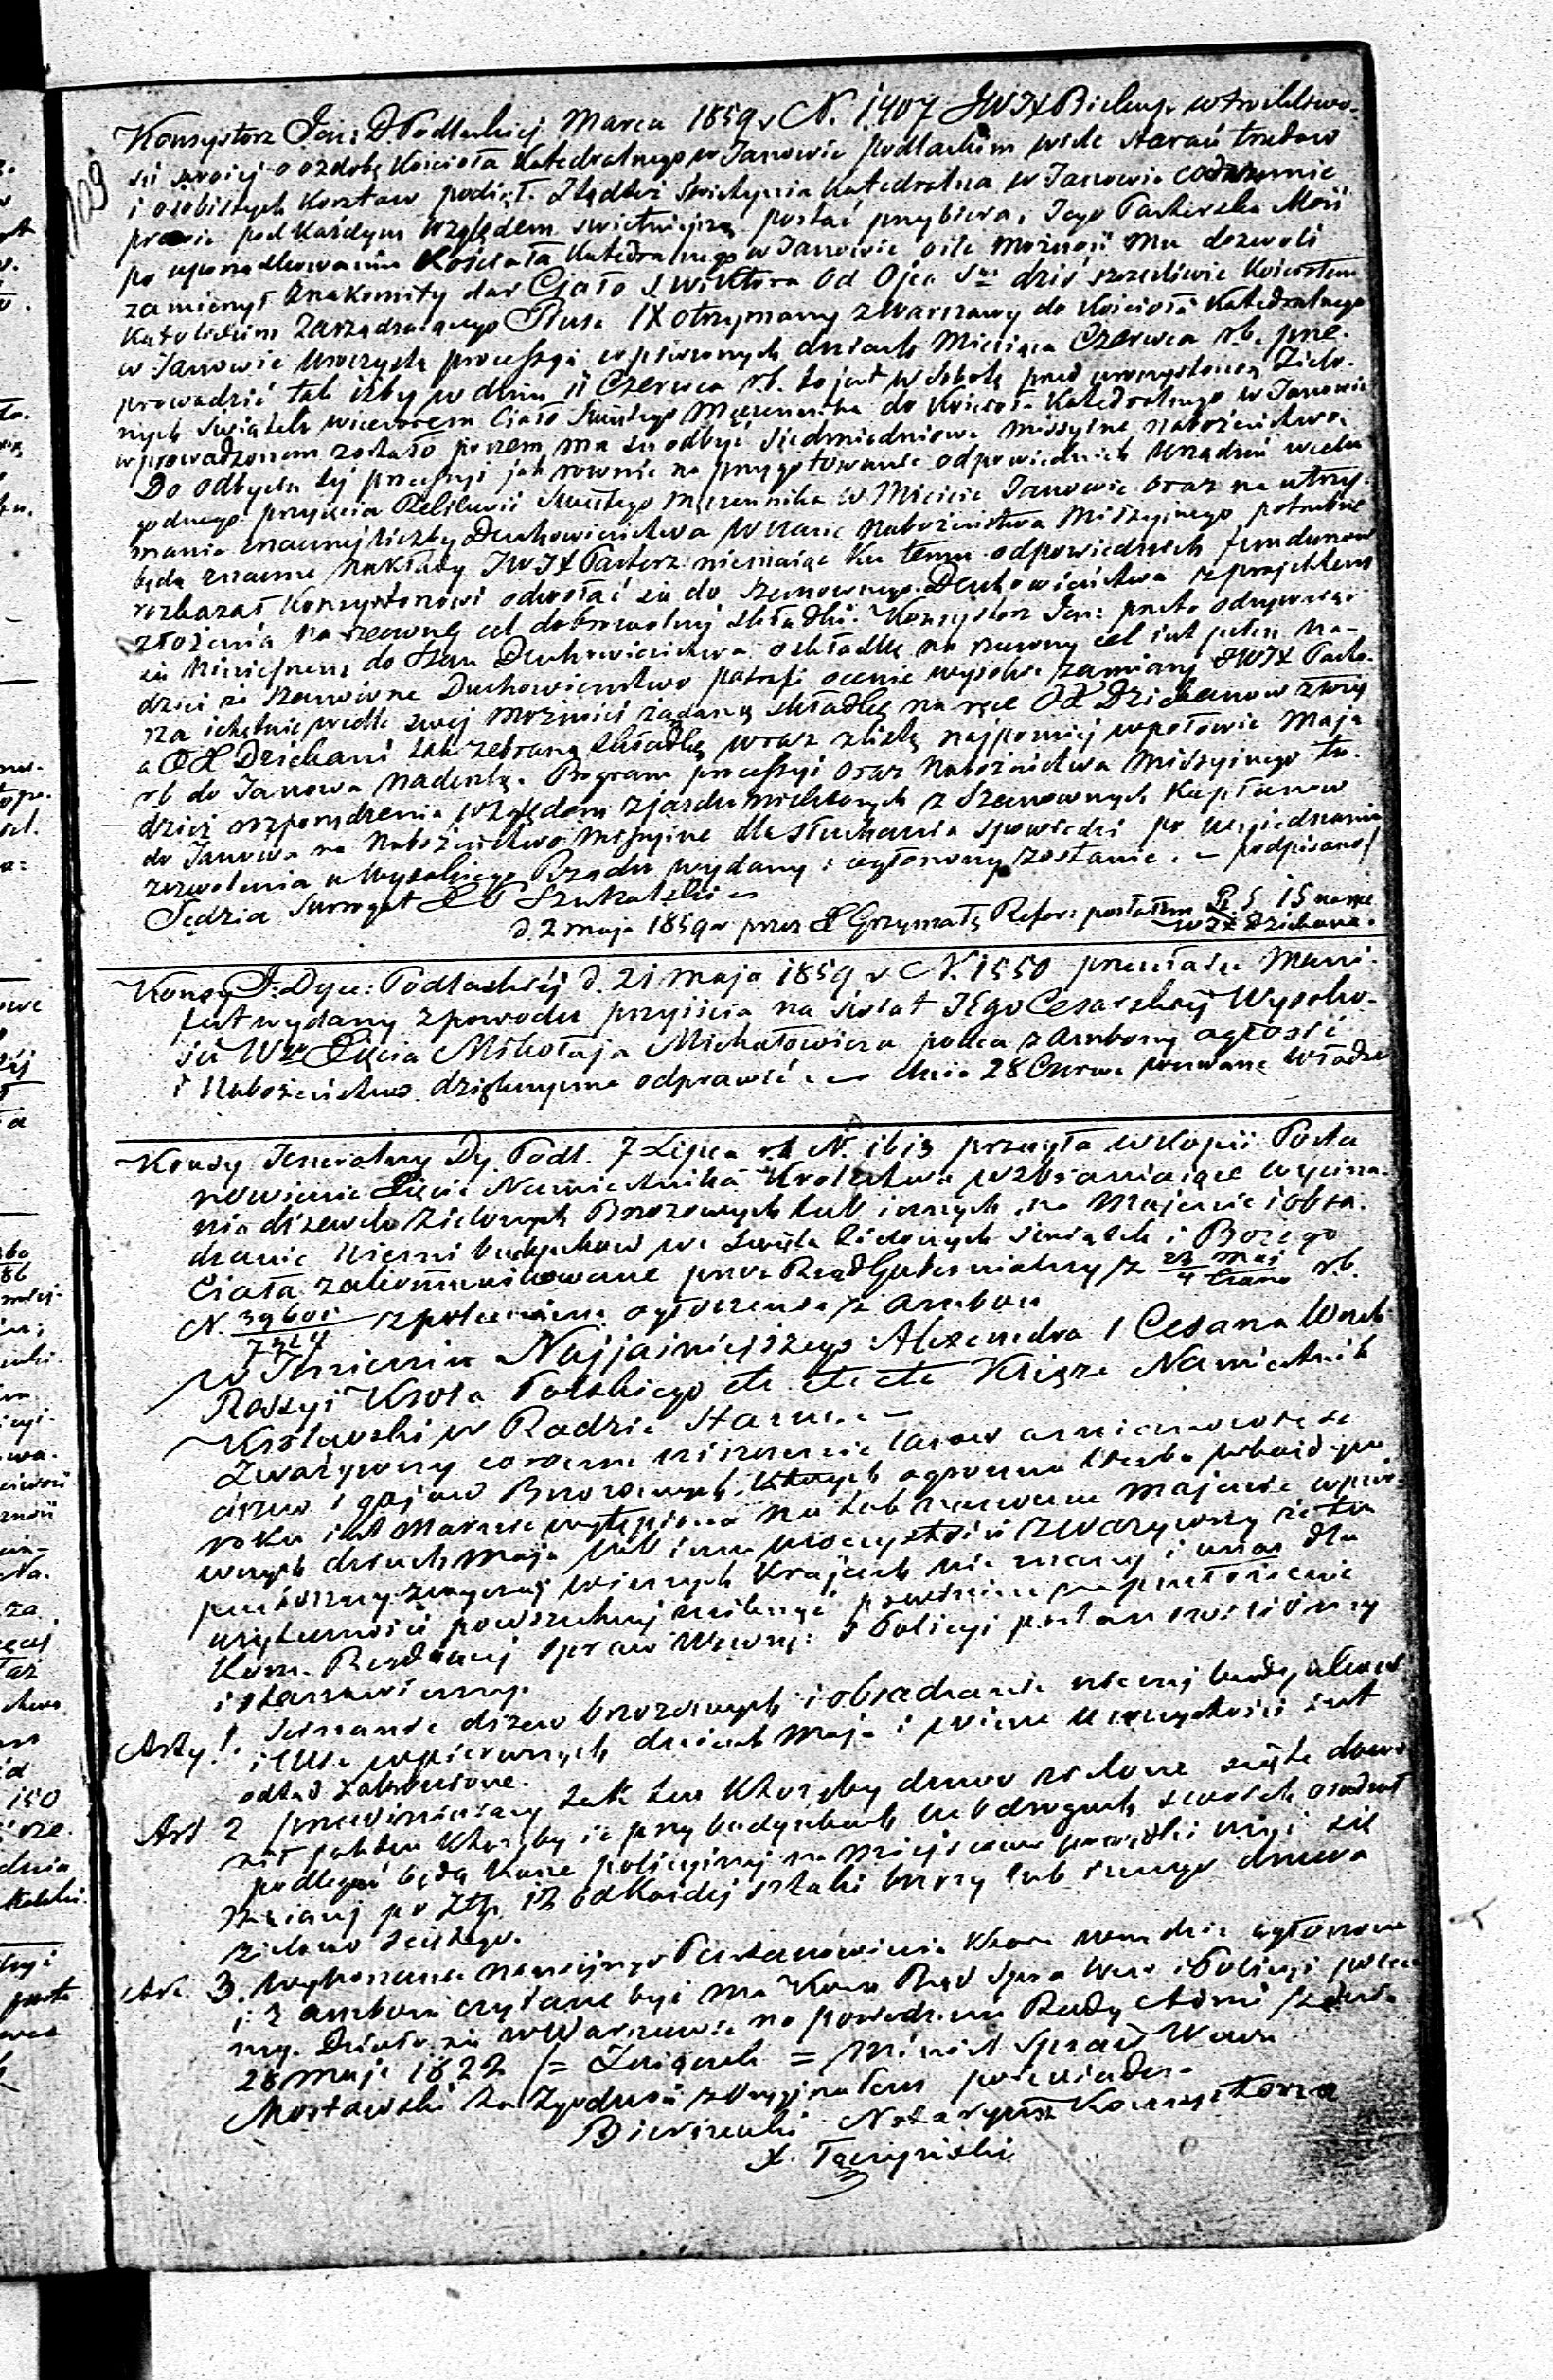 109
Konsystorz Jen: D. Podlaskiej Marca 1859 r N. 1407 JWJX Biskup w troskliwo-
ści swoiej o ozdobę Kościoła Katedralnego w Janowie podlaskim wiele starań trudow
i osobistych kosztow podiął. Zkądteż Świątynia Katedralna w Janowie codziennie
prawie pod Każdym względem swietnieyszą postać przybiera, Jego Pasterska Mość
po uporządkowaniu Kościoła Katedralnego w Janowie oile możność mu dozwoli
zamierzył Znakomity dar Ciało S Wiktora Od Ojca Sgo dziś szczęśliwie Kościołem
Katolickim Zarządzaiącego Piusa IX otrzymany z Warszawy do Kościoła Katedralnego
w Janowie uroczystą processyą w pierwszych dniach Miesiąca Czerwca r.b. prze-
prowadzić tak iżby w dniu 11 Czerwca r.b. to jest w Sobotę przed uroczystością Zielo-
nych Swiątek wieczorem Ciało Świętego Męczennika do Kościoła Katedralnego w Janowie
wprowadzonem zostało poczem ma się odbyć siedmiodniowe missyine nabożeństwo.
Do odbycia tej processyi jak rownie na przygotowanie odpowiednich Urządzeń wielce
godnego przyięcia Relikwii Świętego Męczennika w Mieście Janowie oraz na utrzy-
manie znacznej liczby Duchowieństwa w czasie Nabożeństwa Missyjnego potrzebne
będą znaczne nakłady JWJX Pasterz niemaiąc ku temu odpowiednich funduszow
rozkazał Konsystorzowi odwołać się do Szanownego Duchowieństwa z projektem
złożenia na rzeczony cel dobrowolnej składki. Konsystorz Jen: przeto odzywaiąc
się niniejszem do Szan Duchowieństwa o składkę na rzeczony cel iest pełen na-
dziei że szanowne Duchowieństwo potrafi ocenić wysokie zamiary JWJX Paste-
rza ichętnie wedle swej możności żądaną składkę na ręce XX Dziekanow złoży
a XX Dziekani tak zebraną składkę wraz z listą najpozniej w połowie Maja
r b do Janowa nadeszlą. Program processyi oraz Nabożeństwa Missyinego tu-
dzież rozporządzenia względem zjazdu niektorych z Szanownych Kapłanow
do Janowa na Nabożeństwo missyine dla słuchania spowiedzi po uzyskaniu
zezwolenia u Wysokiego Rządu wydany i ogłoszony zostanie. – podpisano/
Sędzia Surrogat X Szukalski
d. 2 maja 1859 r przez X Grzymałę posłałem 15 na
Dziekana.
Konsy J: Dyec: Podlaskiej d. 21 maja 1859 r N. 1550 przesłaiąc Mani-
fest wydany z powodu przyiścia na świat Jego Cesarskiej Wysoko-
ści Wgo Xięcia Mikołaja Michałowicza poleca z Ambony ogłosić
i Nabożeństwo dziękczynne odprawić. – dnia 28 Czerw.
Konsy Jeneralny Dy. Podl. 7 Lipca r.b N. 1613 przesyła w Kopii Posta
nowienie Xięcia Namiestnika Krolestwa wzbraniaiące wycina-
nia drzewek zielonych Brzozowych lub innych na Majenie i obsa-
dzanie niemi budynkow we święta Zielonych świątek i Bożego
Ciała zakommunikowane przez Rząd Gubernialny z 23 Maj / 4 Czerw r.b.
N. 39601 / 7324 z poleceniem ogłoszenia z ambon
W Imieniu Najjaśniejszego Alexandra I Cesarza Wszech
Rossyi Krola Polskiego etc etc etc Xiąże Namiestnik
Krolewski w Radzie Stanu. –
Zważywszy coroczne niszczenie lasow a mianowicie
drzew i gajow Brzozowych, których ogromna liczba
roku iest marnie wytępiona na tak nazwane majenie w pier-
wszych dniach Maja lub inne uroczystości Zważywszy że ta
zwyczaj w innych krajach nie znany i u nas dla
użyteczności powszechnej powinien na przełożenie
Kom. Rządzącej Spraw Wewnę: i Policyi postanowiliśmy
i stanowiemy.
Arty 1. Scinanie drzew brzozowych i obsadzanie niemi budynkow
i ulic w pierwszych dniach Maja i w inne uroczystości iest
odtąd zabronione.
Art 2 przewiniaiący tak ten Któryby drzewo zielone ścięte dowo
ził jako ten Któryby ie przy budynkach lub drogach swoich osadzał
podlegać będą karze policyinej na miejscowe potrzeby użyć się
maiącej po Złp. 12 od Każdej sztuki brzozy lub innego drzewa
zielono ściętego.
Art. 3. Wykonanie niniejszego Postanowienia Które wszędzie ogłoszone
i z ambon czytane być ma Kom Rząd Spra Wew i Policyi poleca
my. Działo się w Warszawie na posiedzeniu Rady Admi
28 maja 1822 /= Zaiączek = Minist Spraw Wewn
Mostowski Za Zgodność z Oryginałem poswiadcza
Notaryusz Konsystorza
X. Tączyński